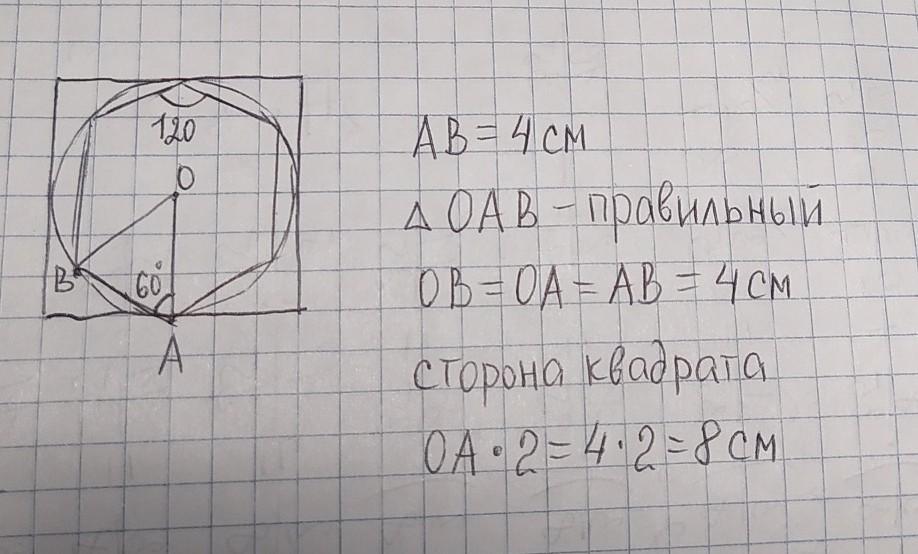 120
O
B
60°
A
AB = 4 см
Δ OAB – правильный
OB = OA = AB = 4 см
сторона квадрата
OA · 2 = 4 · 2 = 8 см